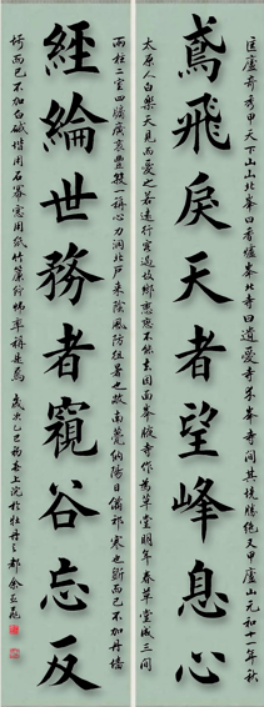 匡廬奇秀甲天下山山北峯曰香爐峯北寺曰遺愛寺介峯寺間其境勝絕又甲廬山元和十一年秋
鳶飛戾天者望峰息心
太原人白樂天見而愛之若遠行客過故鄉戀戀不能去因面峯腋寺作為草堂明年春草堂成三間
兩柱二室四牖廣袤豐殺一稱心力洞北戶來陰風防徂暑也敞南甍納陽日備祁寒也斲而已不加丹墻
經綸世務者窺谷忘反
圬而已不加白堿階用石冪窓用紙竹簾紵幃率稱是焉 歲次乙巳初春上浣於牡丹之都余